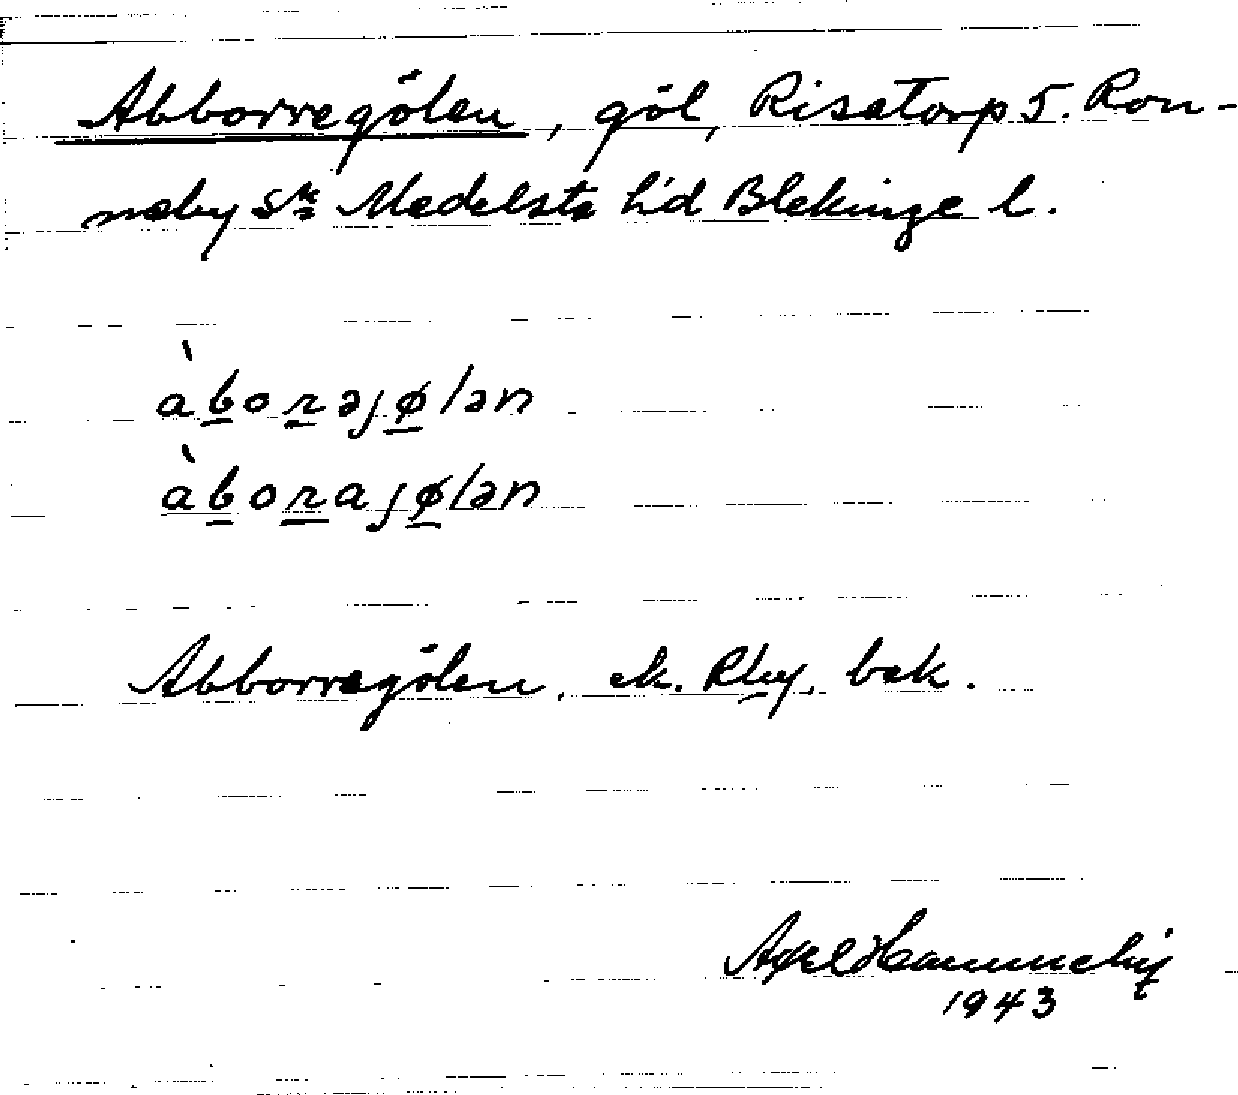 Abborregölen, göl, Risatorp 5. Ron-
neby sn Medelsta hd Blekinge l.
àborəjølən
àborajølən
Abborregölen, ek. Rby. bek.
Axel
1943